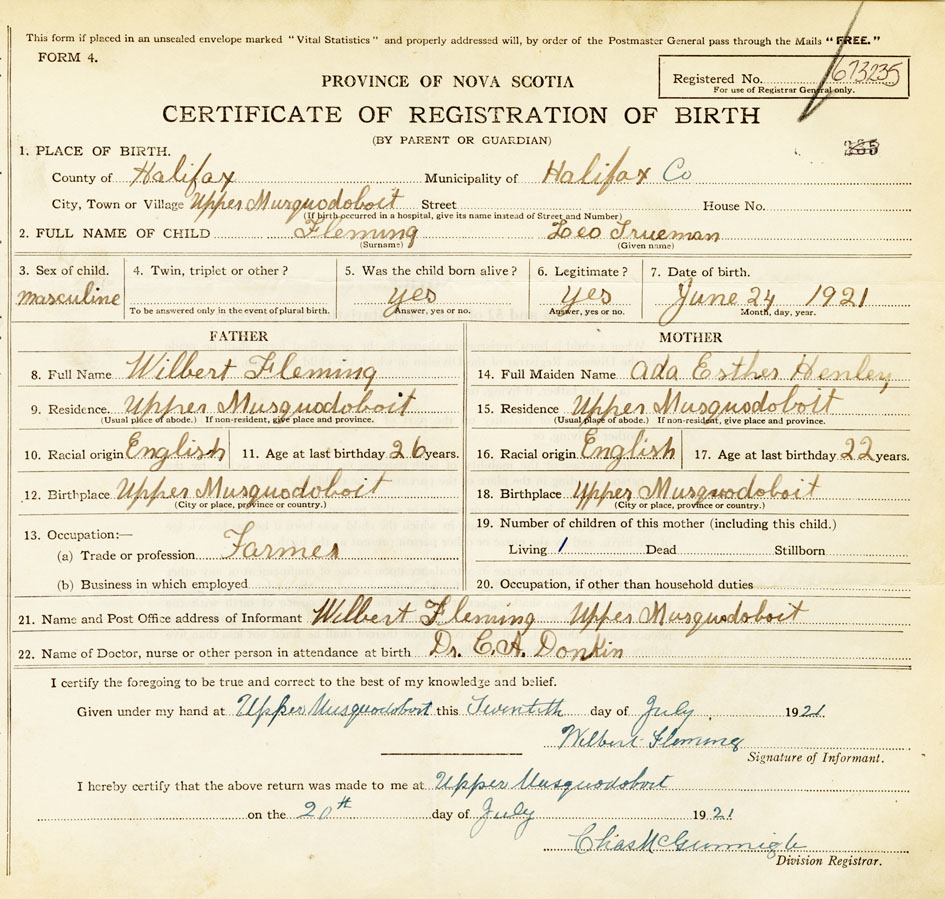 This form if placed in an unsealed envelope marked "Vital Statistics" and properly addressed will, by order of the Postmaster General pass through the Mails "FREE."
FORM 4.
Registered No. 673235
For use of Registrar General only.
PROVINCE OF NOVA SCOTIA
CERTIFICATE OF REGISTRATION OF BIRTH
(BY PARENT OR GUARDIAN)
1. PLACE OF BIRTH.
County of Halifax Municipality of Halifax Co
City, Town or Village Upper Musquodoboit Street House No.
(If birth occurred in a hospital, give its name instead of Street and Number)
2. FULL NAME OF CHILD Fleming Leo Trueman
(Surname) (Given name)
3. Sex of child. 4. Twin, triplet or other? 5. Was the child born alive? 6. Legitimate? 7. Date of birth.
masculine yes yes June 24 1921
To be answered only in the event of plural birth. Answer, yes or no. Answer, yes or no. Month, day, year.
FATHER MOTHER
8. Full Name Wilbert Fleming 14. Full Maiden Name Ada Esther Henley
9. Residence. Upper Musquodoboit 15. Residence Upper Musquodoboit
(Usual place of abode.) If non-resident, give place and province. (Usual place of abode.) If non-resident, give place and province.
10. Racial origin English 11. Age at last birthday 26 years. 16. Racial origin English 17. Age at last birthday 22 years.
12. Birthplace Upper Musquodoboit 18. Birthplace Upper Musquodoboit
(City or place, province or country.) (City or place, province or country.)
13. Occupation:— 19. Number of children of this mother (including this child.)
(a) Trade or profession Farmer Living 1 Dead Stillborn
(b) Business in which employed 20. Occupation, if other than household duties
21. Name and Post Office address of Informant Wilbert Fleming Upper Musquodoboit
22. Name of Doctor, nurse or other person in attendance at birth Dr. C. A. Donkin
I certify the foregoing to be true and correct to the best of my knowledge and belief.
Given under my hand at Upper Musquodoboit this Twentith day of July 1921.
Wilbert Fleming
Signature of Informant.
I hereby certify that the above return was made to me at Upper Musquodoboit
on the 20th day of July 1921
Chas McGunnigle
Division Registrar.